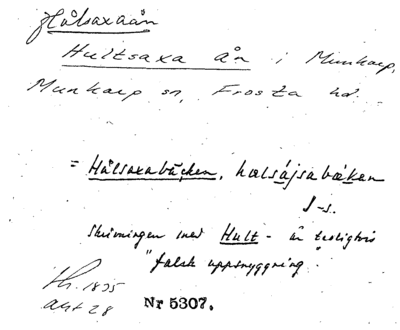 Hålsaxaån
Hultsaxa ån i Munkarp,
Munkarp sn, Frosta hd.
= Hålsaxabäcken, halsájsabäken
J-s.
skrivningen med Hult- är troligtvis
"falsk uppsnyggning.
1835
akt 28
Nr 5307.